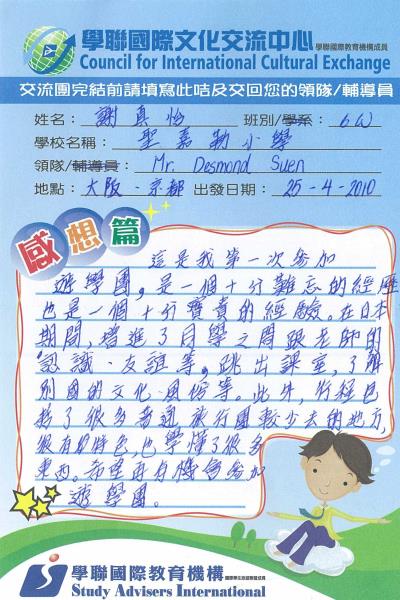 學聯國際文化交流中心 學聯國際教育機構成員
Council for International Cultural Exchange
交流團完結前請填寫此咭及交回您的領隊/輔導員
姓名：謝真怡 班別/學系：6W
學校名稱：聖嘉勒小學
領隊/輔導員：Mr. Desmond Suen
地點：大阪、京都 出發日期：25-4-2010
感想篇
這是我第一次參加
遊學團，是一個十分難忘的經歷
也是一個十分寶貴的經驗。在日本
期間，增進了同學之間跟老師的
認識、友誼等，跳出課室，了解
別國的文化、風俗等。此外，行程包
括了很多普通旅行團較少去的地方，
很有特色，也學懂了很多
東西。希望再有機會參加
遊學團。
學聯國際教育機構
Study Advisers International